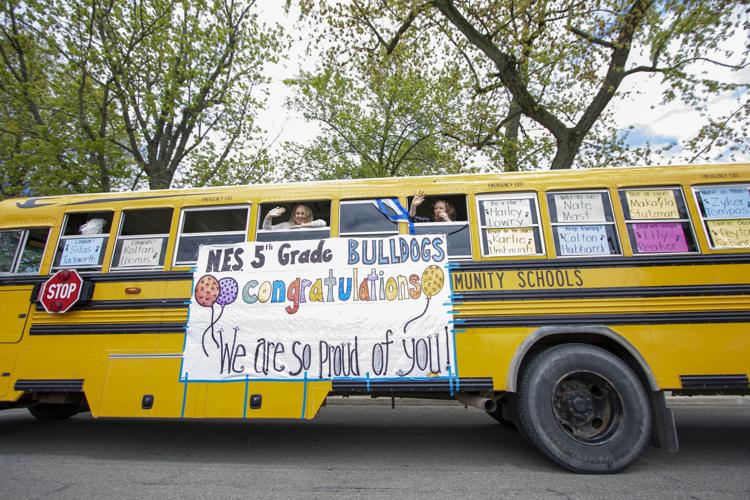 EMERGENCY EXIT
EMERGENCY EXIT
EMERGENCY EXIT
EMERGENCY EXIT
STOP
Congrats
Silas
Tuckworth
Congrats
Koltan
Loomis
N.E.S. 5th Grade BULLDOGS
congratulations
We are so proud of you!
MUNITY SCHOOLS
Be a star!
Hailey
Lowry
Karlie
Umbaugh
Way to go
Nate
Mast
Keep Shining
Colton
Hubbard
Best of Luck!
Makayla
Stutzman
Lily
Reaker
Zyker